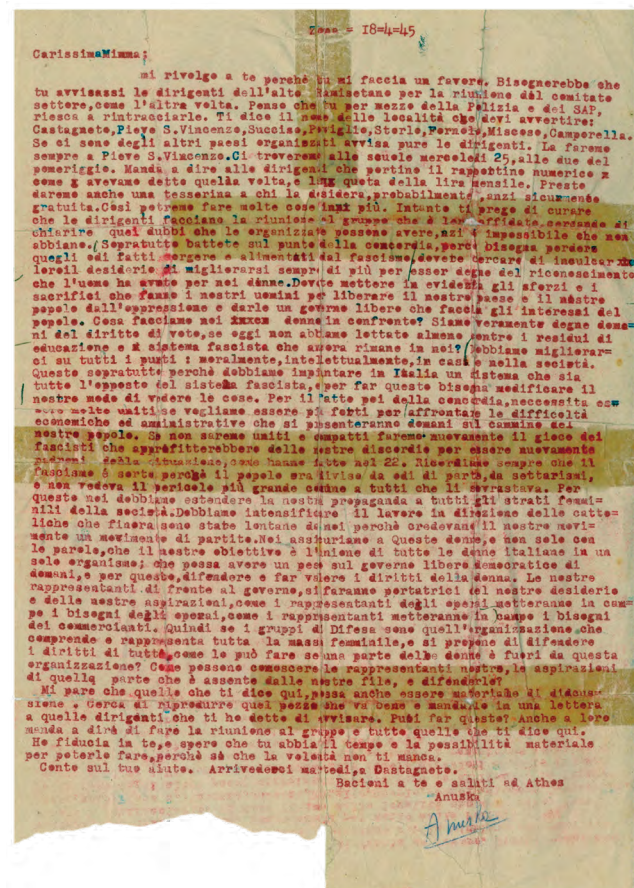 Zona = 18=4=45
CarissimaMimma;
mi rivolgo a te perchè tu mi faccia un favore. Bisognerebbe che
tu avvisassi le dirigenti dell'alto Ramisetano per la riunione del comitato
settore,come l'altra volta. Penso che tu per mezzo della Polizia e dei SAP,
riesca a rintracciarle. Ti dico il nome delle località che devi avvertire:
Castagneto,Pieve S.Vincenzo,Succiso,Poviglio,Storlo,Fornolo,Miscoso,Camporella.
Se ci sono degli altri paesi organizzati avvisa pure le dirigenti. La faremo
sempre a Pieve S.Vincenzo.Ci troveremo alle scuole mercoledì 25,alle due del
pomeriggio. Manda a dire alle dirigenti che portino il rapportino numerico x
come x avevamo detto quella volta,e la quota della lira mensile. Presto
daremo anche una tesserina a chi la desidera,probabilmente,anzi sicurmente
gratuita.Così potremo fare molte cose in più. Intanto ti prego di curare
che le dirigenti facciano la riunione al gruppo che è loro affidato,cercando di
chiarire quei dubbi che le organizzate possono avere,nzi è impossibile che non
abbiano.(Sopratutto battete sul punto della concordia,perc bisogna perdere
quegli odi fatti sorgere e alimentati dal fascismo,dovete cercare di inculcar xxx
loroil desiderio di migliorarsi sempre di più per esser degne del riconoscimento
che l'uomo ha avuto per noi donne.Dovete mettere in evidenza gli sforzi e i
sacrifici che fanno i nostri uomini per liberare il nostro paese e il nostro
popolo dall'oppressione e darle un governo libero che faccia gli interessi del
popolo. Cosa facciamo noi xxxxx donne in confronto? Siamo veramente degne doma=
ni del diritto di voto,se oggi non abbiamo lottato almeno contro i residui di
educazione e x sistema fascista che ancora rimane in noi? Dobbiamo migliorar=
ci su tutti i punti : moralmente,intellettualmente,in casa e nella società.
Questo sopratutto perchè dobbiamo impiantare in Italia un sistema che sia
tutto l'opposto del sistema fascista,e per far questo bisogna modificare il
nostro modo di vedere le cose. Per il fatto poi della concordia,neccessita es=
sere molto uniti se vogliamo essere più forti per affrontare le difficoltà
economiche ed amministrative che si presenteranno domani sul cammino del
nostro popolo. Se non saremo uniti e compatti faremo nuovamente il gioco dei
fascisti che approfitterebbero delle nostre discordie per essere nuovamente
padroni della situazione,come hanno fatto nel 22. Ricordiamo sempre che il
fascismo è sorto perchè il popolo era diviso da odi di parte,da settarismi,
e non vedeva il pericolo più grande comune a tutti che li sovrastava. Per
questo noi dobbiamo estendere la nostra propaganda a tutti gli strati femmi=
nili della società.Dobbiamo intensificare il lavoro in direzione delle catto=
liche che finora sono state lontane da noi perchè credevano il nostro movi=
mento un movimento di partito.Noi assicuriamo a Queste donne,e non solo con
le parole,che il nostro obiettivo è l'unione di tutte le donne italiane in un
solo organismo; che possa avere un peso sul governo libero democratico di
domani,e per questo,difendere e far valere i diritti della donna. Le nostre
rappresentanti di fronte al governo,si faranno portatrici del nostro desiderio
e delle nostre aspirazioni,come i rappresentanti degli operai metteranno in cam=
po i bisogni degli operai,come i rappresentanti metteranno in campo i bisogni
dei commercianti. Quindi se i gruppi di Difesa sono quell'organizzazione che
comprende e rappresenta tutta la massa femminile,e si propone di difendere
i diritti di tutte,come lo può fare se una parte delle donne è fuori da questa
organizzazione? Come possono conoscere le rappresentanti nostre,le aspirazioni
di quella parte che è assente dalle nostre file, e difenderle?
Mi pare che quello che ti dico qui,possa anche essere materiale di discus=
sione . Cerca di riprodurre quel pezzo che va bene e mandarlo in una lettera
a quelle dirigenti che ti ho detto di avvisare. Puoi far questo? Anche a loro
manda a dire di fare la riunione al gruppo e tutto quello che ti dico qui.
Ho fiducia in te,e spero che tu abbia il tempo e la possibilità materiale
per poterlo fare,perchè sò che la volontà non ti manca.
Conto sul tuo aiuto. Arrivederci martedì,a Castagneto.
Bacioni a te e saluti ad Athos
Anuska
Anuska